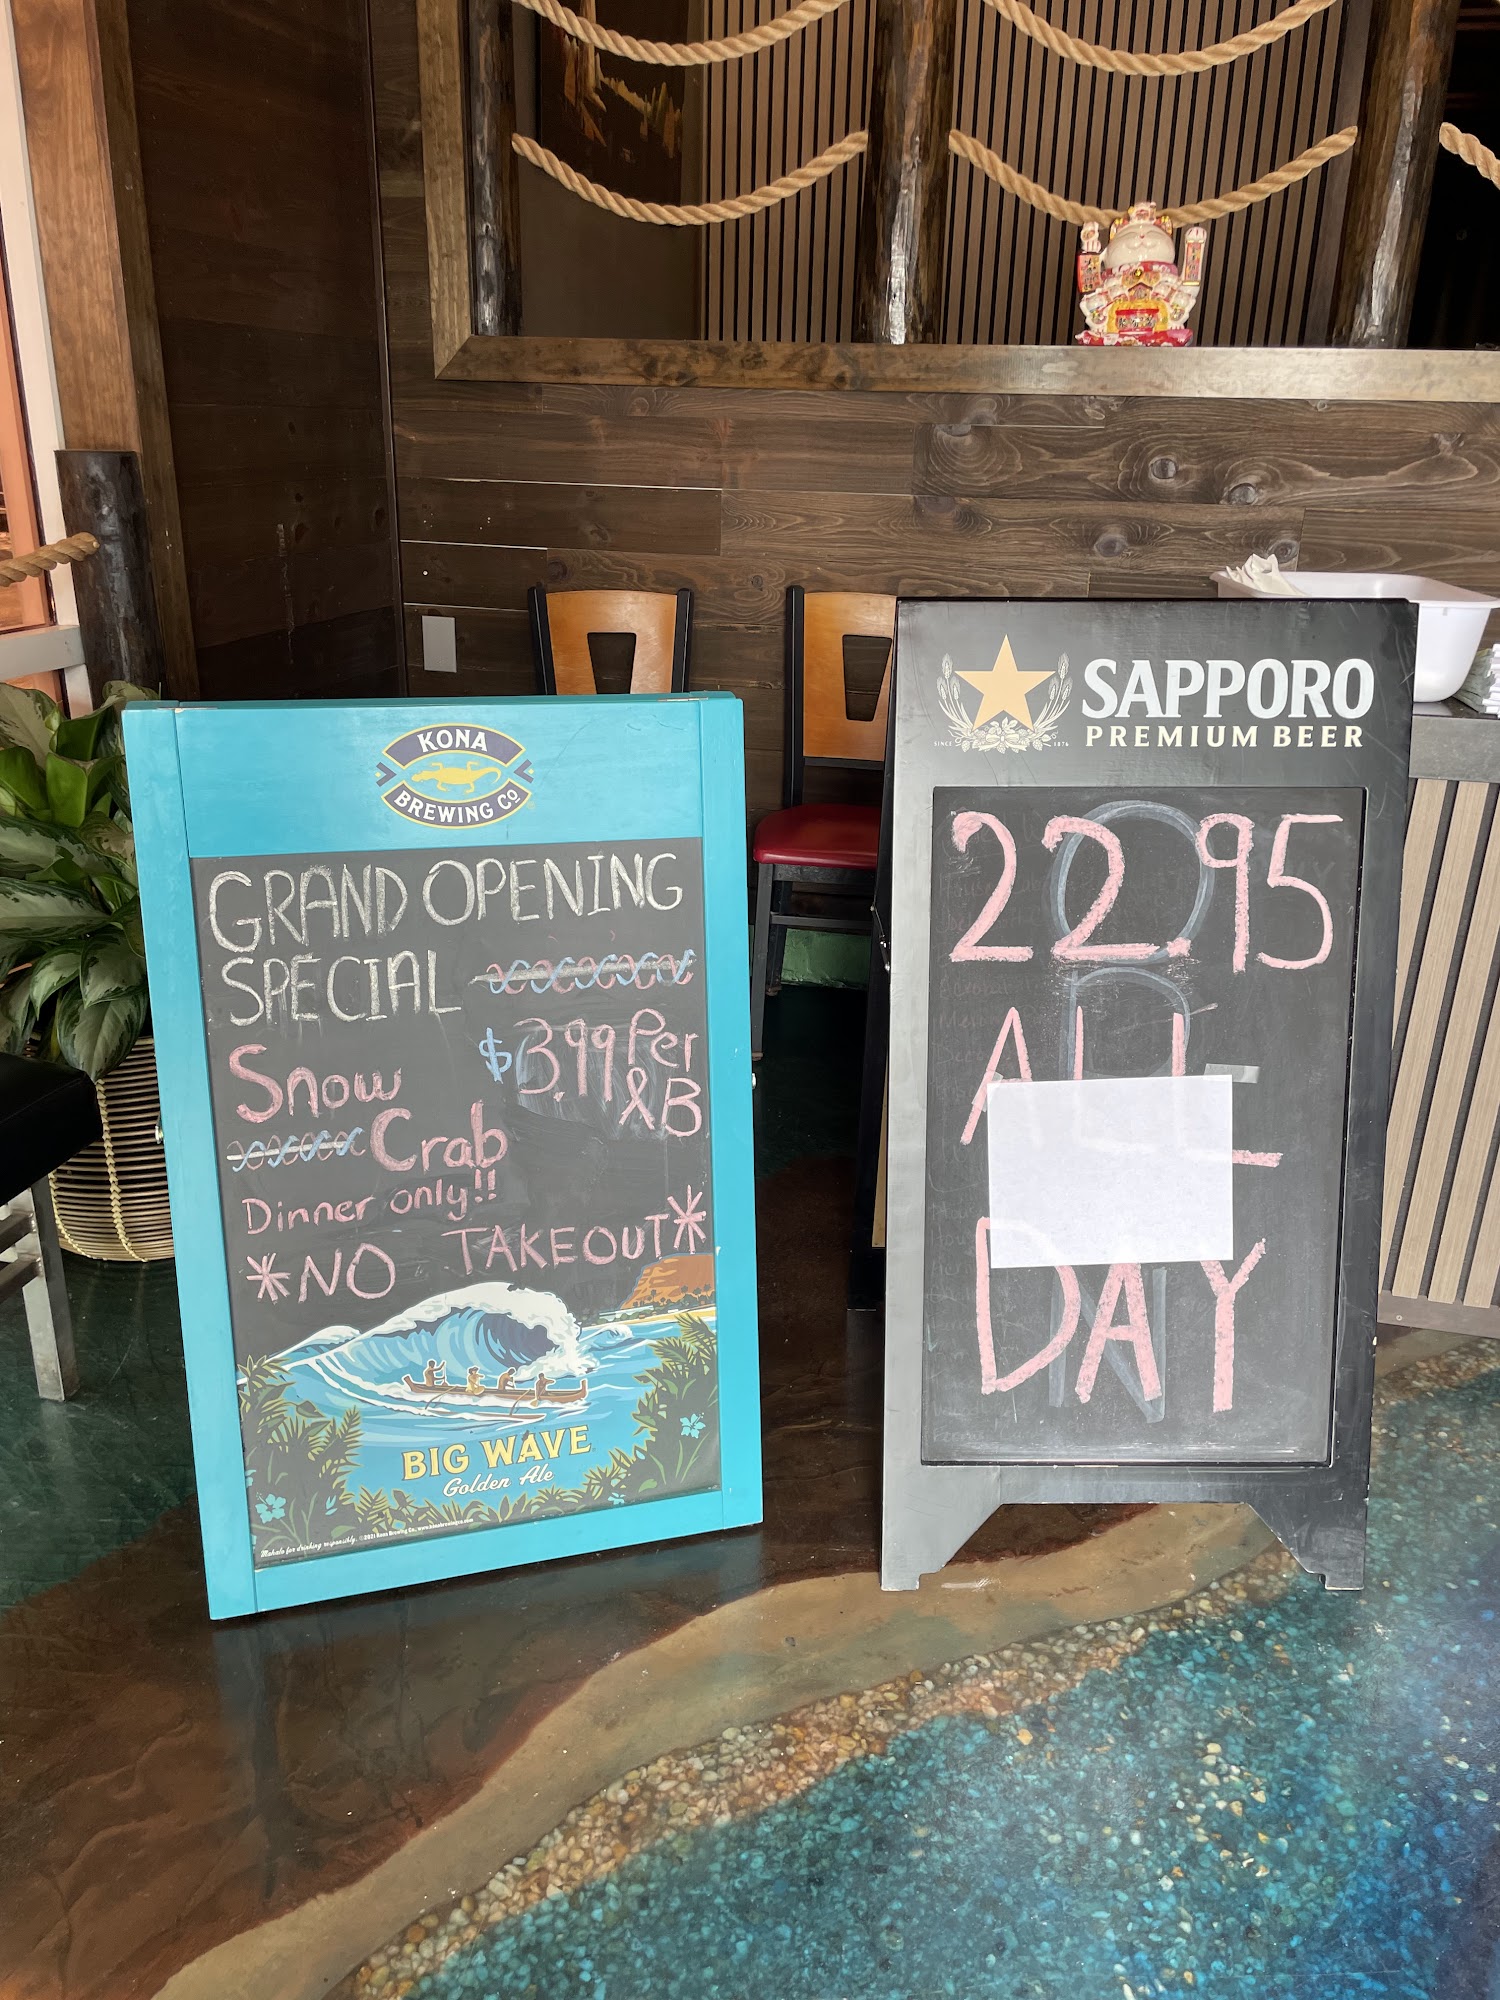 KONA
BREWING Co
GRAND OPENING
SPECIAL
Snow $3.99 Per
Crab LB
Dinner only!!
*NO TAKEOUT*
BIG WAVE
Golden Ale
Mahalo for drinking responsibly. ©2021 Kona Brewing Co. www.konabrewingco.com
SAPPORO
SINCE 1876
PREMIUM BEER
22.95
ALL
DAY